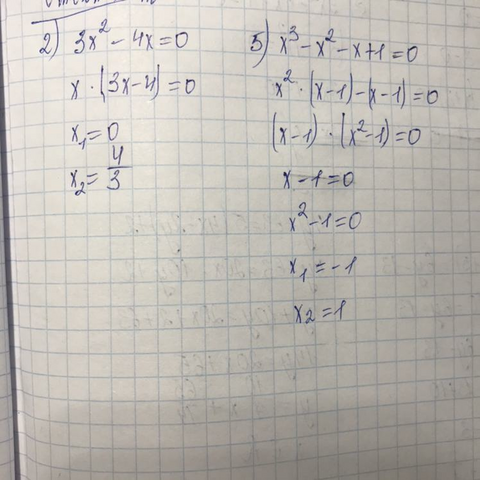 2) 3x² - 4x = 0
x · (3x - 4) = 0
x₁ = 0
x₂ = 4/3
5) x³ - x² - x + 1 = 0
x² · (x - 1) - (x - 1) = 0
(x - 1) · (x² - 1) = 0
x - 1 = 0
x² - 1 = 0
x₁ = -1
x₂ = 1